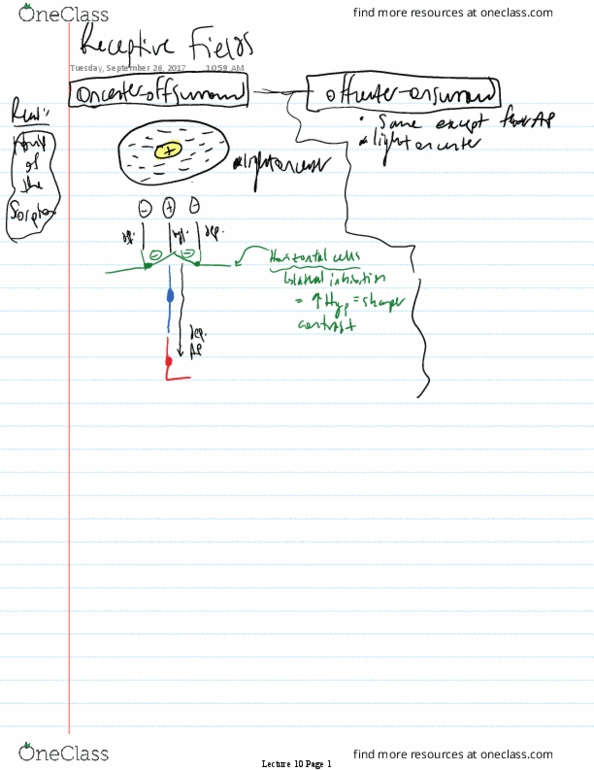 OneClass
find more resources at oneclass.com
Receptive Fields
Tuesday, September 26, 2017 10:59 AM
oncenter-offsurround
offcenter-onsurround
Read:
of
the
Scorpion
• Same except AP
• light on center
+
• light on center
- + -
hyp. dep.
- -
Horizontal cells
lateral inhibition
= ↑ Hyp = sharper
contrast
dep.
AP
OneClass
find more resources at oneclass.com
Lecture 10 Page 1